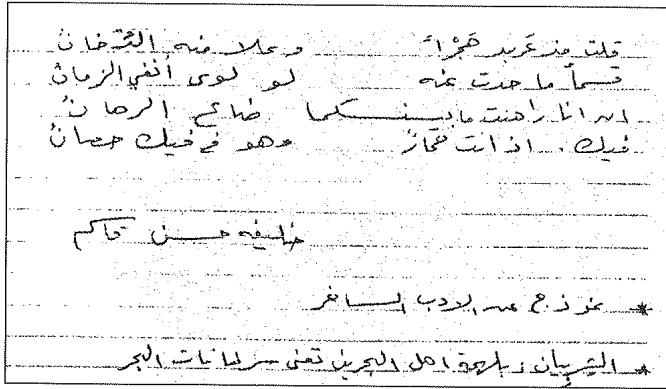 قلت مذ عَربد هَجْراً وعلا منه الدُّخانْ
قسماً ما حدت عنه لو لوى أنفي الزمانْ
ان انا راهنت ما بينكما ضاع الرهانُ
فيك. اذ انت حمارٌ وهو في فيك حصانُ
خليفه حسن قاسم
* نموذج من الادب الساخر
* الشريبان: بلهجة اهل البحرين تعني سرطانات البحر